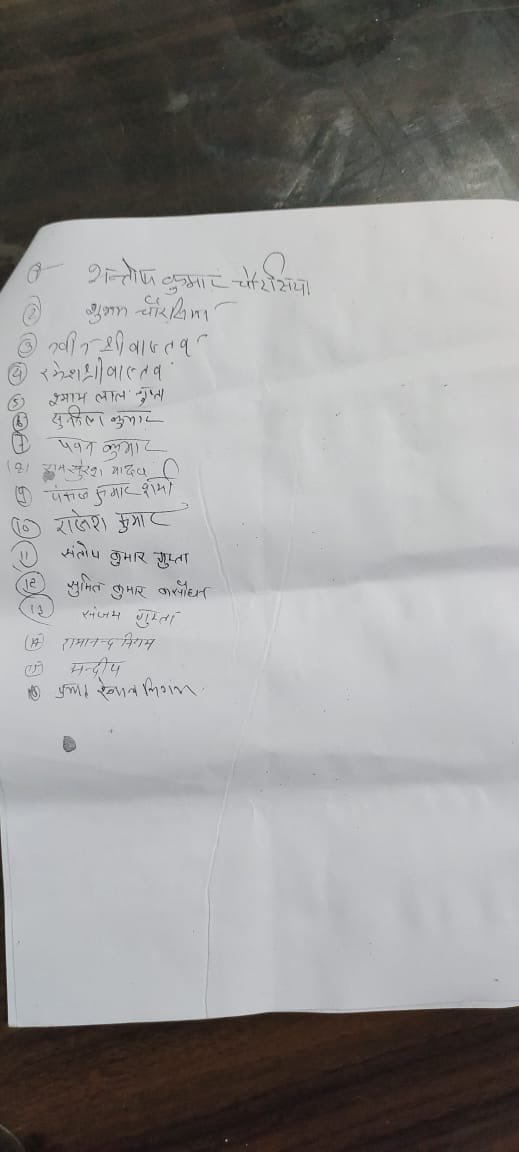 ① सन्तोष कुमार चौरसिया
② शुभम चौरसिया
③ नवीन श्रीवास्तव
④ रमेश श्रीवास्तव
⑤ श्याम लाल गुप्ता
⑥ सुशील कुमार
⑦ पवन कुमार
(8) रामसुरेश यादव
⑨ पंकज कुमार शर्मा
⑩ राजेश कुमार
⑪ संतोष कुमार गुप्ता
⑫ सुमित कुमार कसौधन
⑬ संजय गुप्ता
⑭ रामानन्द निगम
⑮ सन्दीप
⑯ निगम